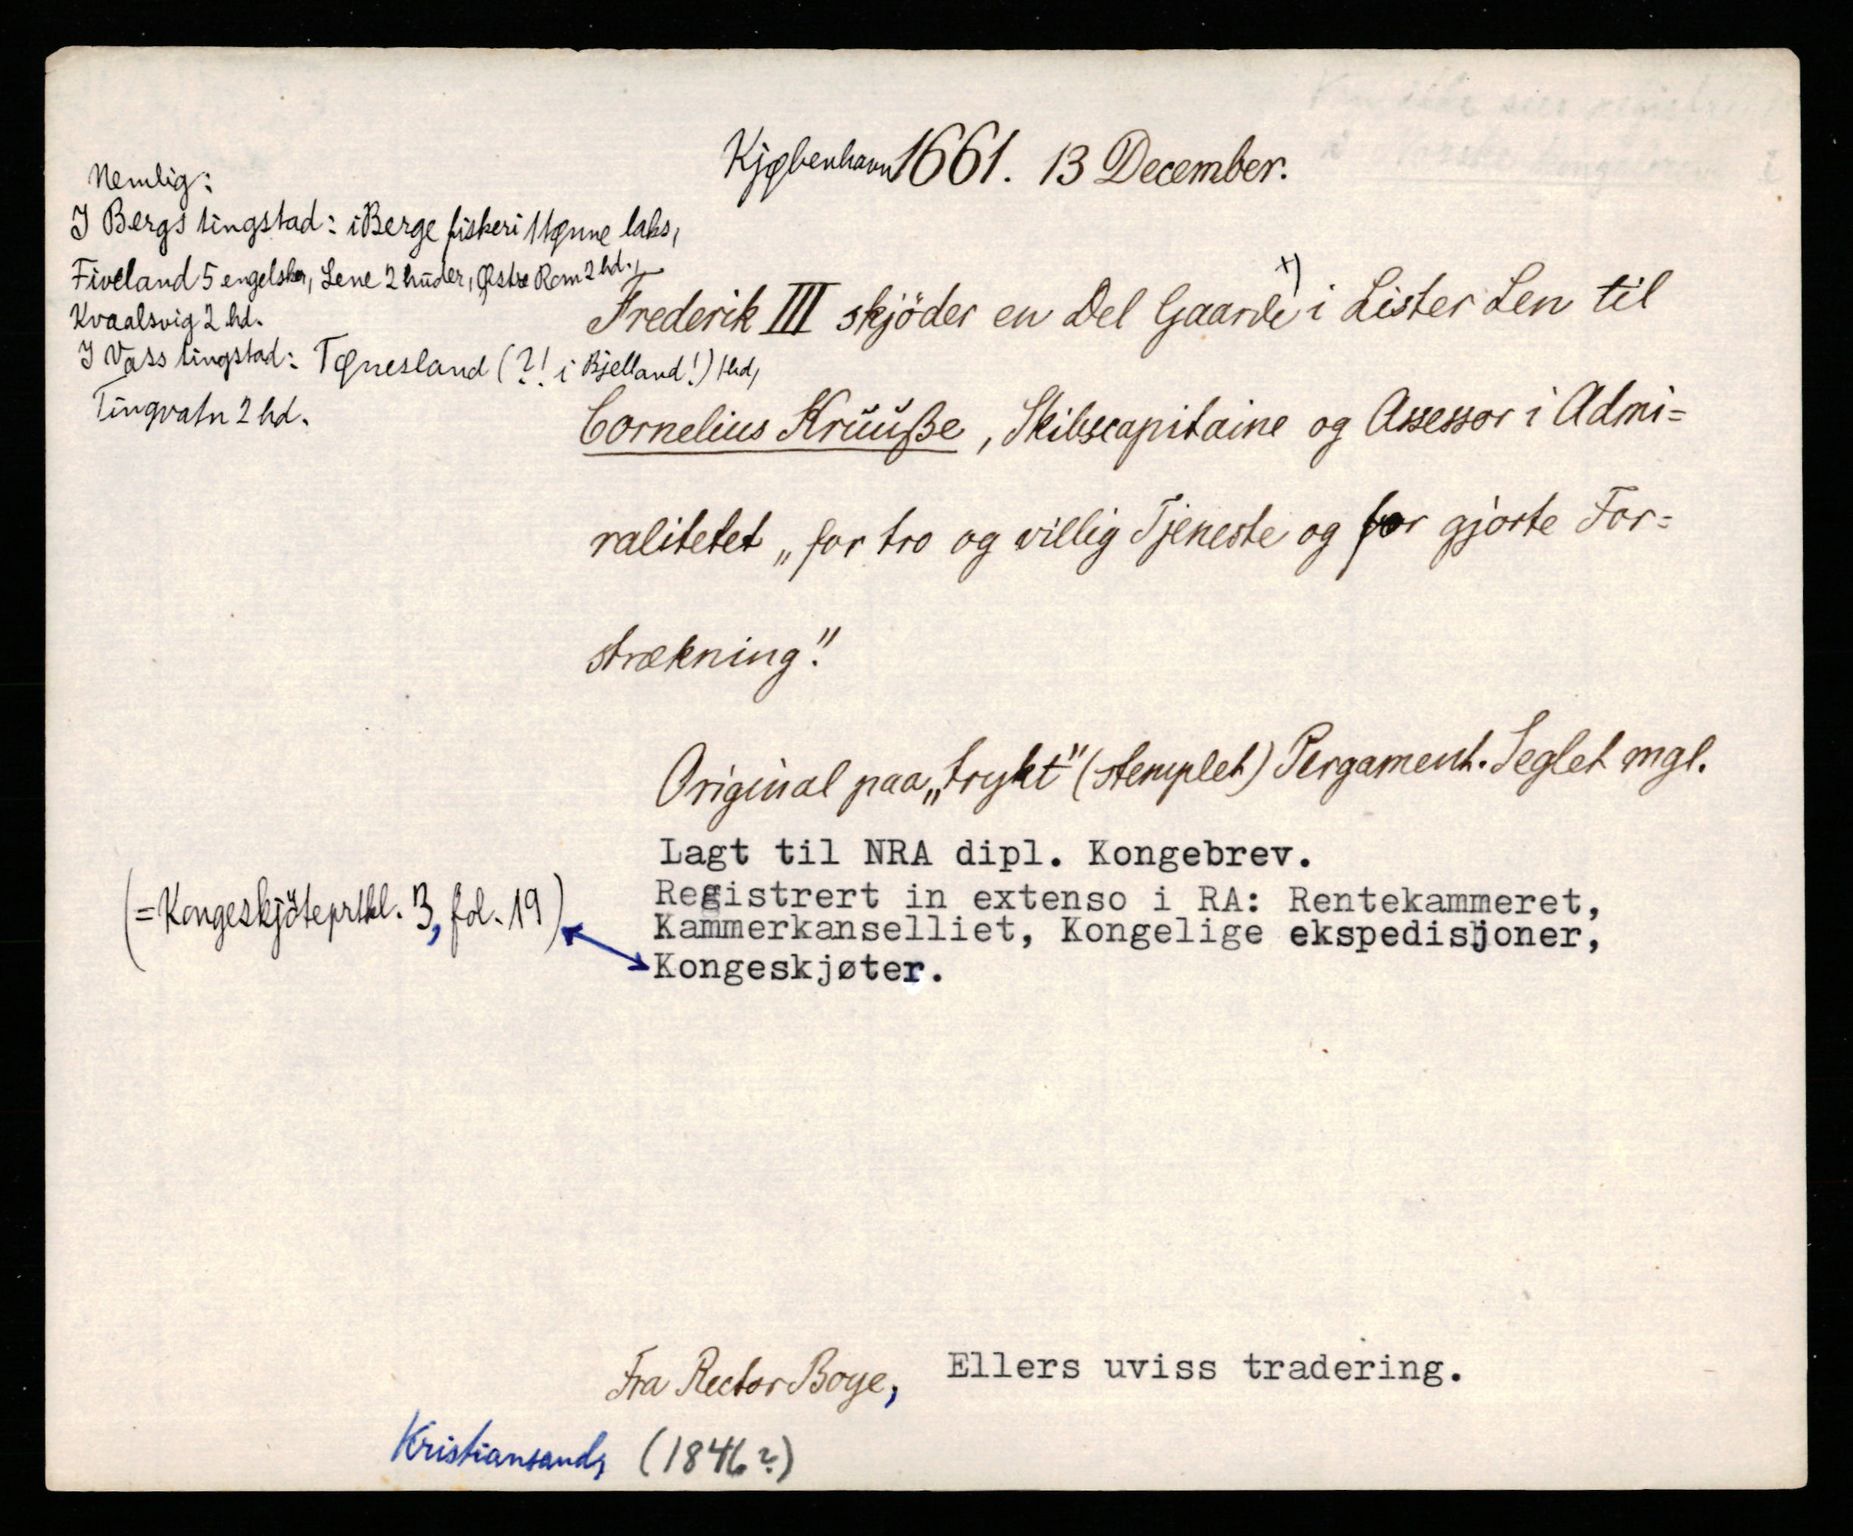 Kjøbenhavn 1661. 13 December.
Nemlig:
I Bergs tingstad: i Berge fiskeri 1 tønne laks,
Fiveland 5 engelsker, Lene 2 huder, Østre Rom 2 hd.,
Kvaalsvig 2 hd.
I Vass tingstad: Tønesland (?! i Bjelland!) 1 hd,
Tingvatn 2 hd.
Frederik III skjöder en Del Gaarde x) i Lister Len til
Cornelius Krüüße, Skibscapitaine og Assessor i Admi=
ralitetet „for tro og villig Tjeneste og for gjorte For=
strækning".
Original paa „trykt" (stemplet) Pergament. Seglet mgl.
Lagt til NRA dipl. Kongebrev.
Registrert in extenso i RA: Rentekammeret,
Kammerkanselliet, Kongelige ekspedisjoner,
Kongeskjøter.
(=Kongeskjöteprtkl. 3, fol. 19)
Fra Rector Boye, Ellers uviss tradering.
Kristiansand, (1846?)